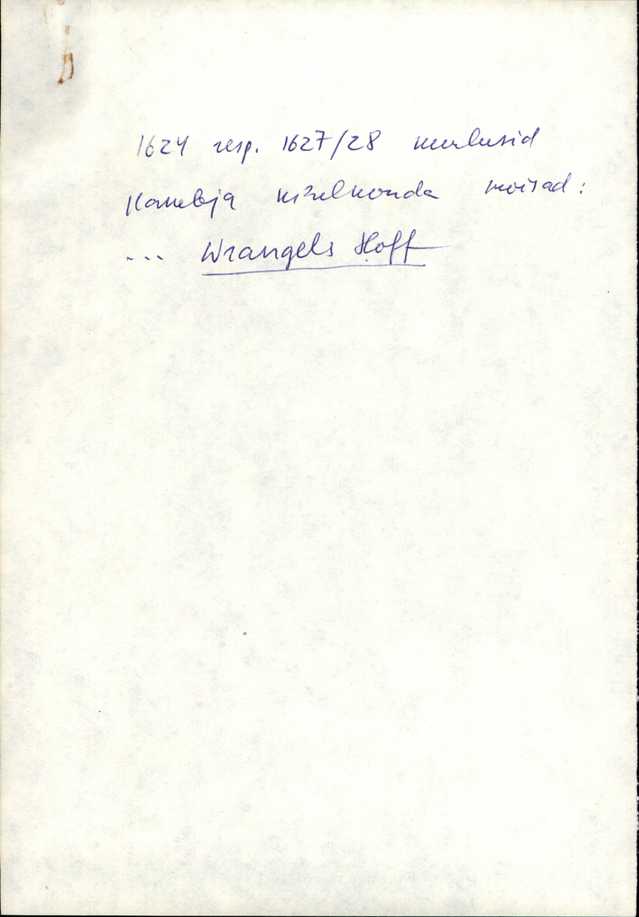 1624 resp. 1627/28 kuulusid
Kambja kihelkonda mõisad:
... Wrangels Hoff